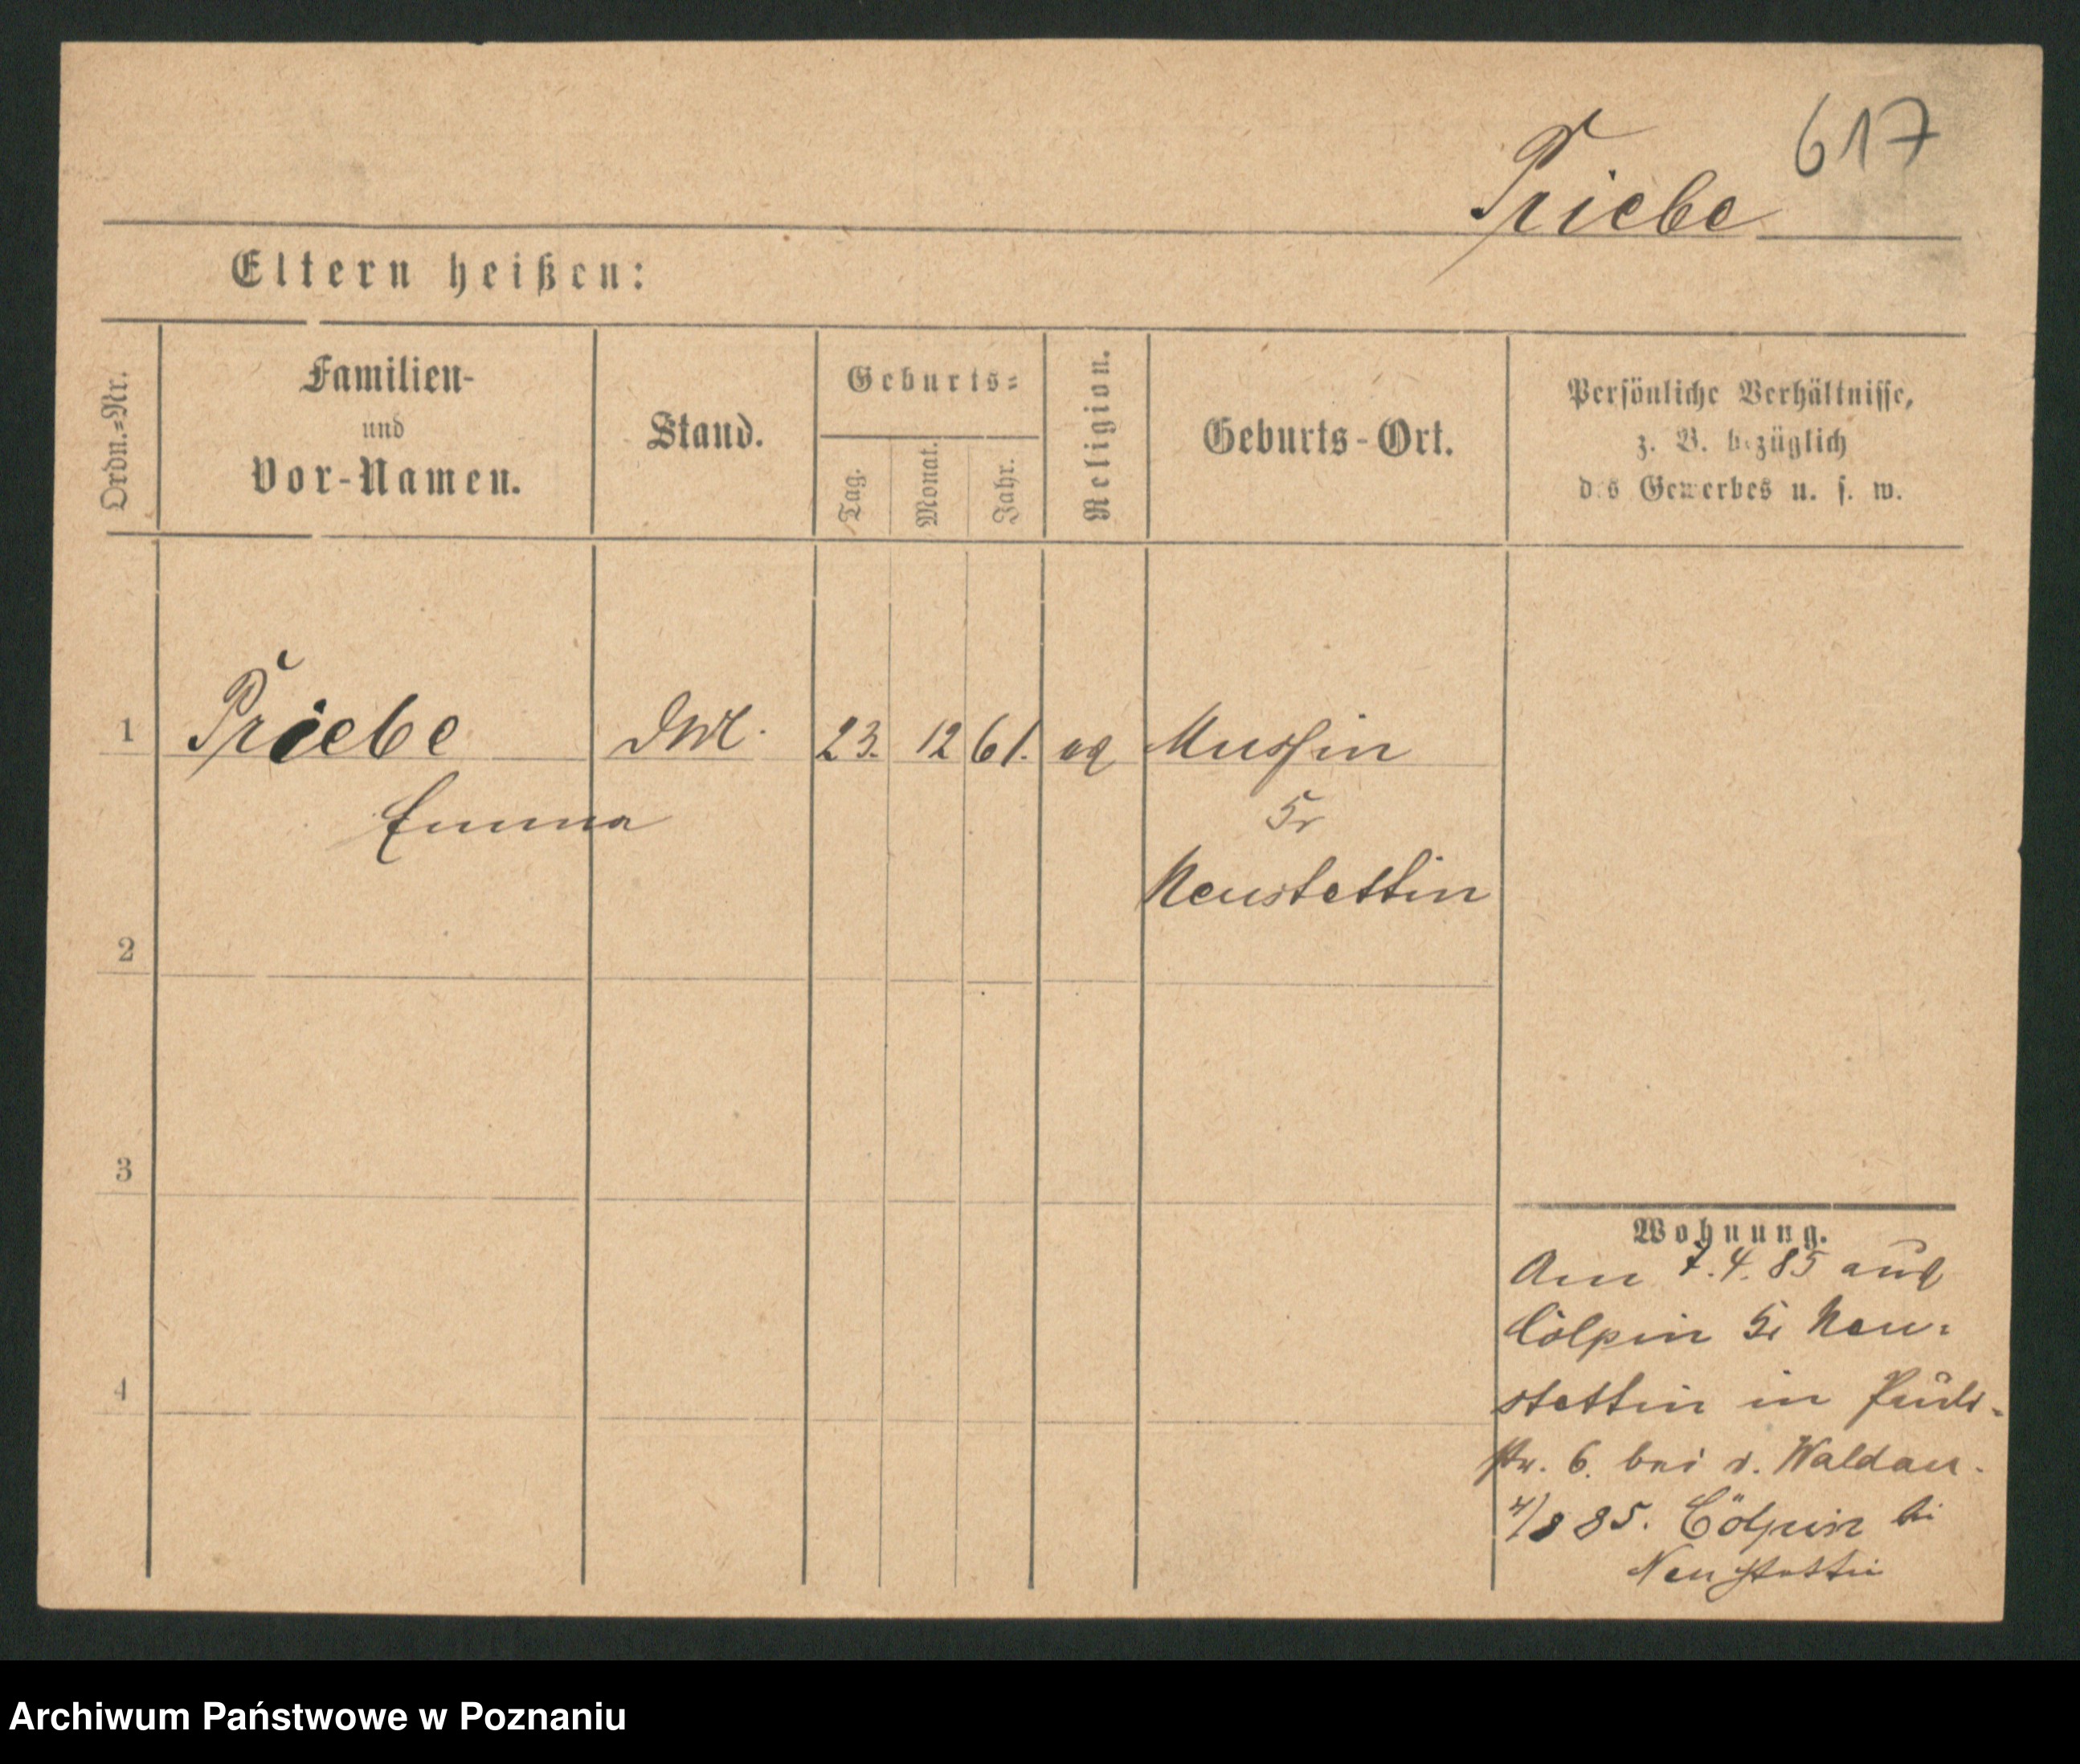 617
Priebe
Eltern heißen:
Ordn.=Nr.
Familien-
und
Vor-Namen.
Stand.
Geburts=
Tag.
Monat.
Jahr.
Religion.
Geburts-Ort.
Persönliche Verhältnisse,
z. B. bezüglich
des Gewerbes u. s. w.
1 Priebe 23. 12 61. Mussin
Emma
Kr
Neustettin
2
3
4
Wohnung.
Am 7.4.85 aus
Cölpin Kr Neu=
stettin in
str. 6. bei v. Waldau.
4/8 85. Cölpin bei
Neustettin
Archiwum Państwowe w Poznaniu